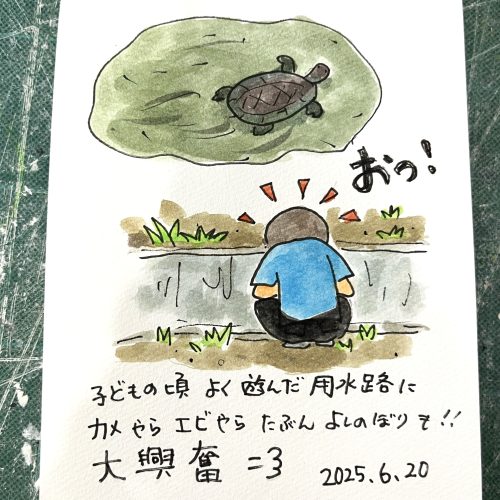 おっ!
子どもの頃 よく 遊んだ 用水路に
カメ やら エビやら たぶん よしのぼりも!!
大興奮 =3
2025.6.20